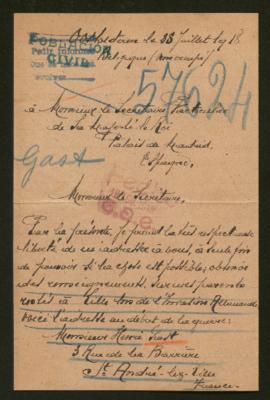 Ostende le 23 Juillet 1918
POBLACION
CIVIL
Belgique
57624
à Monsieur le Secrétaire Particulier
de Sa Majesté le Roi
Palais de Madrid
Espagne.
Gast
Monsieur le Secrétaire,
Par la présente, je prends la très respectueuse
liberté de m'adresser à vous, à seule fin
de pouvoir si la chose est possible, obtenir
des renseignements sur mes parents
restés à Lille lors de l'invasion Allemande
voici l'adresse au début de la guerre:
Monsieur Henri Gast
3 Rue de la Barrière
St André-lez-Lille
France